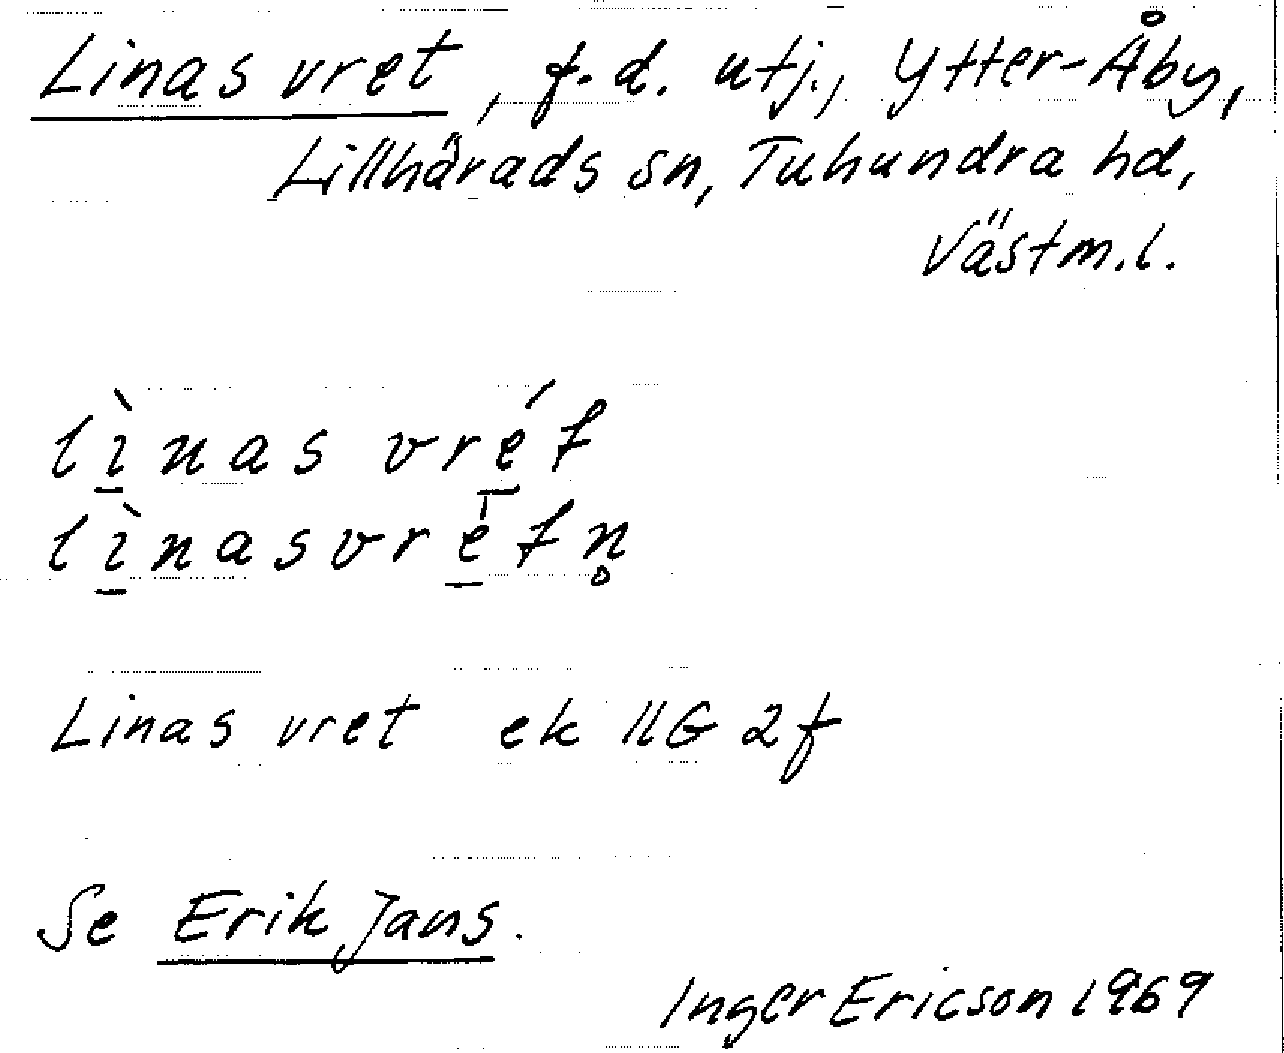 Linas vret, f.d. utj., Ytter-Åby,
Lillhärads sn, Tuhundra hd,
Västm.l.
lìnas vrét
lìnasvrètn̥
Linas vret ek 11G 2f
Se Erik Jans.
Inger Ericson 1969